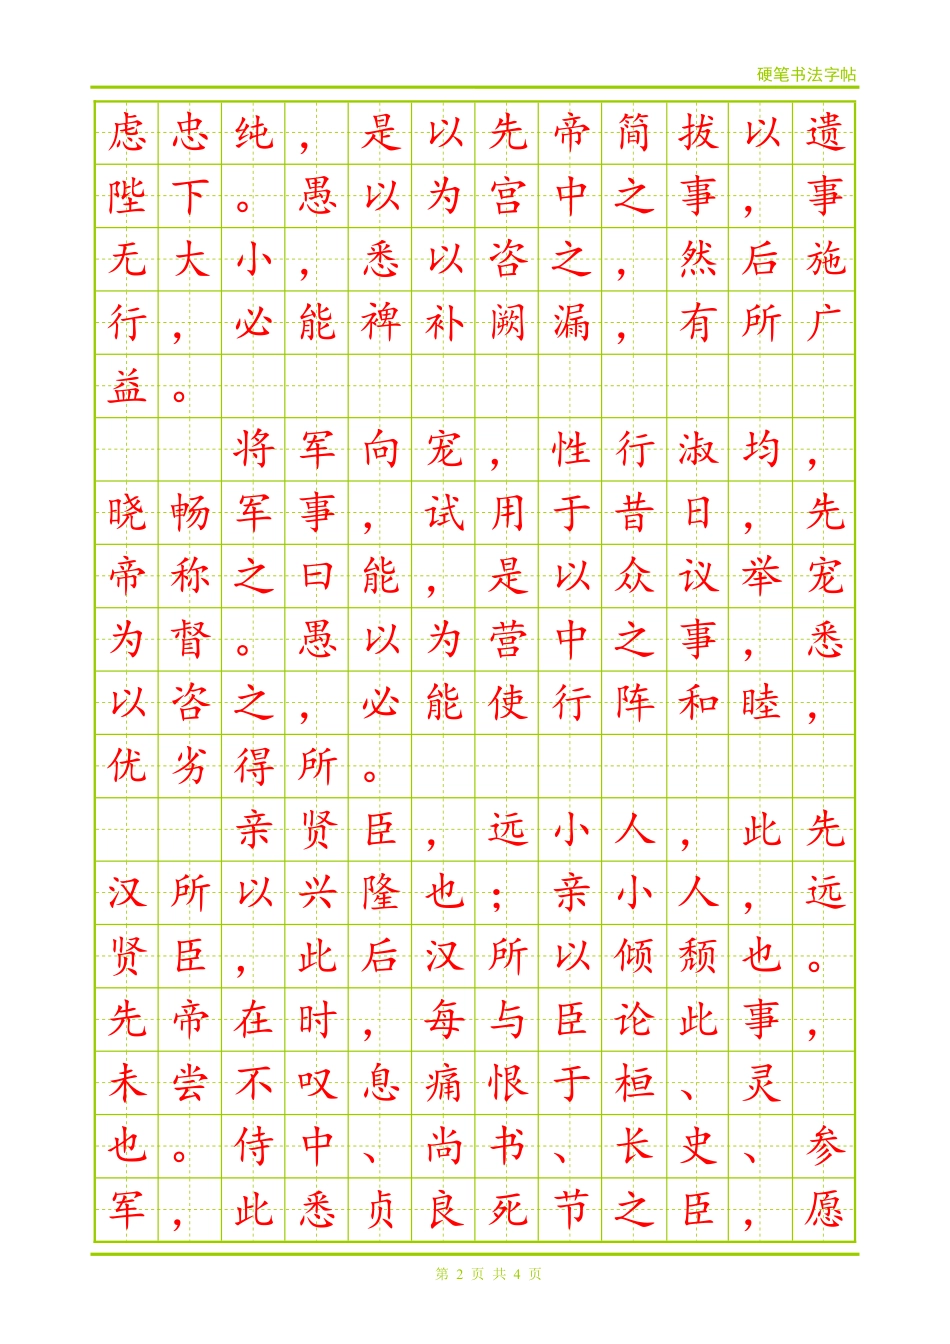 硬笔书法字帖
虑忠纯，是以先帝简拔以遗
陛下。愚以为宫中之事，事
无大小，悉以咨之，然后施
行，必能裨补阙漏，有所广
益。
将军向宠，性行淑均，
晓畅军事，试用于昔日，先
帝称之曰能，是以众议举宠
为督。愚以为营中之事，悉
以咨之，必能使行阵和睦，
优劣得所。
亲贤臣，远小人，此先
汉所以兴隆也；亲小人，远
贤臣，此后汉所以倾颓也。
先帝在时，每与臣论此事，
未尝不叹息痛恨于桓、灵
也。侍中、尚书、长史、参
军，此悉贞良死节之臣，愿
第 2 页 共 4 页